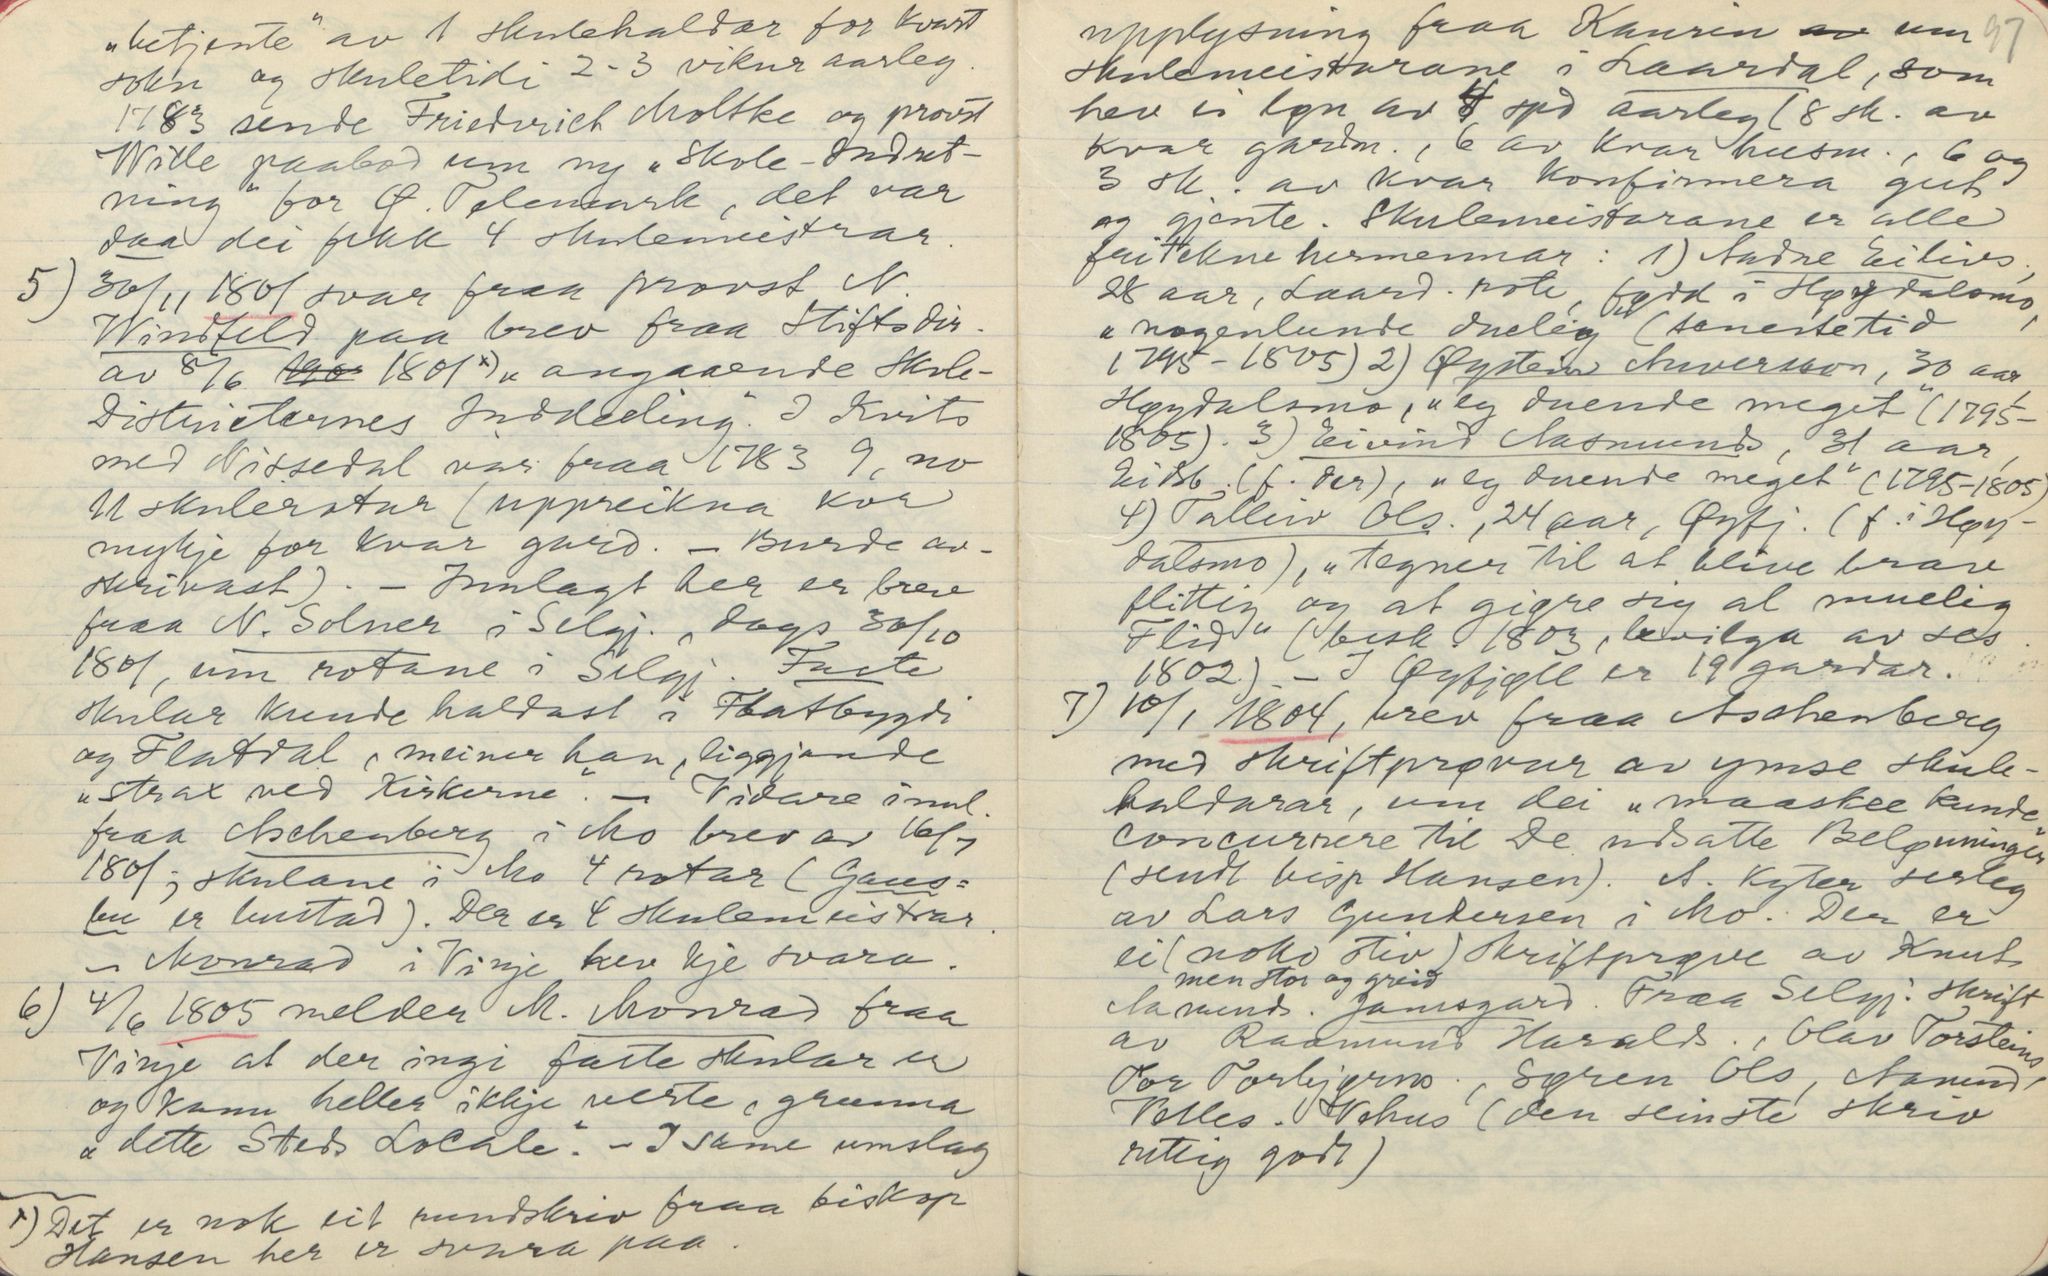 „betjente" av 1 skulehaldar for kvart
sokn og skuletidi 2-3 vikur aarleg.
1783 sende Friedrich Moltke og provst
Wille paabod um ny „Skole-Indret-
ning" for Ø. Telemark, det var
daa dei fekk 4 skulemeistrar.
5) 30/11 1801 svar fraa provst N.
Windfeld paa brev fraa Stiftsdir.
av 8/6 1801 x) „angaaende Skole-
Districternes Inddeling". I Kvits
med Nissedal var fraa 1783 9, no
11 skulerotur (uppreikna kor
mykje for kvar gard. – Burde av-
skrivast). – Innlagt her er brev
fraa N. Solner i Selgj., dags 30/10
1801, um rotane i Selgj. Faste
skular kunde haldast i Flatbygdi
og Flatdal, meiner han, liggjande
„strax ved Kirkerne". – Vidare innl.
fraa Aschenberg i Mo brev av 16/7
1801; skulane i Mo 4 rotar (Gaus-
bu er bustad). Der er 4 skulemeistrar.
– Monrad i Vinje hev kje svara.
6) 4/6 1805 melder M. Monrad fraa
Vinje at der ingi faste skular er
og kann heller ikkje verte, grunna
„dette Steds Locale". – I same umslag
x) Det er nok eit rundskriv fraa biskop
Hansen her er svara paa.
97
upplysning fraa Kaurin um
skulemeistarane i Laardal, som
hev i løn av 4 spd aarleg (8 sk. av
kvar gardm., 6 av kvar husm., 6 og
3 sk. av kvar konfirmera gut
og gjente. Skulemeistarane er alle
fritekne hermennar: 1) Aadne Eilivs.,
28 aar, Laard. rote, fødd i Høydalsmo,
„nogenlunde duelig" (tenestetid
1795-1805) 2) Øystein Anversson, 30 aar,
Høydalsmo, „ey duende meget" (1795-
1805). 3) Eivind Aasmunds, 31 aar,
Eidsb. (f. der), „ey duende meget" (1795-1805)
4) Talleiv Ols., 24 aar, Øyfj. (f. i Høy-
dalsmo), „tegner til at blive brav
flittig og at giøre sig al muelig
Flid" (besk. 1803, bevilga av ses.
1802). – I Øyfjell er 19 gardar.
7) 10/1 1804, brev fraa Aschenberg
med skriftprøvur av ymse skule-
haldarar, um dei „maaskee kunde
concurrere til De udsatte Belønninger"
(sendt bisp Hansen). A. kyter serleg
av Lars Gundersen i Mo. Der er
ei (noko stiv) skriftprøve av Knut
men stor og greid
Aamunds. Jamsgard. Fraa Selgj. skrift
av Raamund Haralds., Olav Torsteins,
Tor Torbjørns., Søren Ols, Aamund
Velles. Nehus (den seinste skriv
rettig godt)